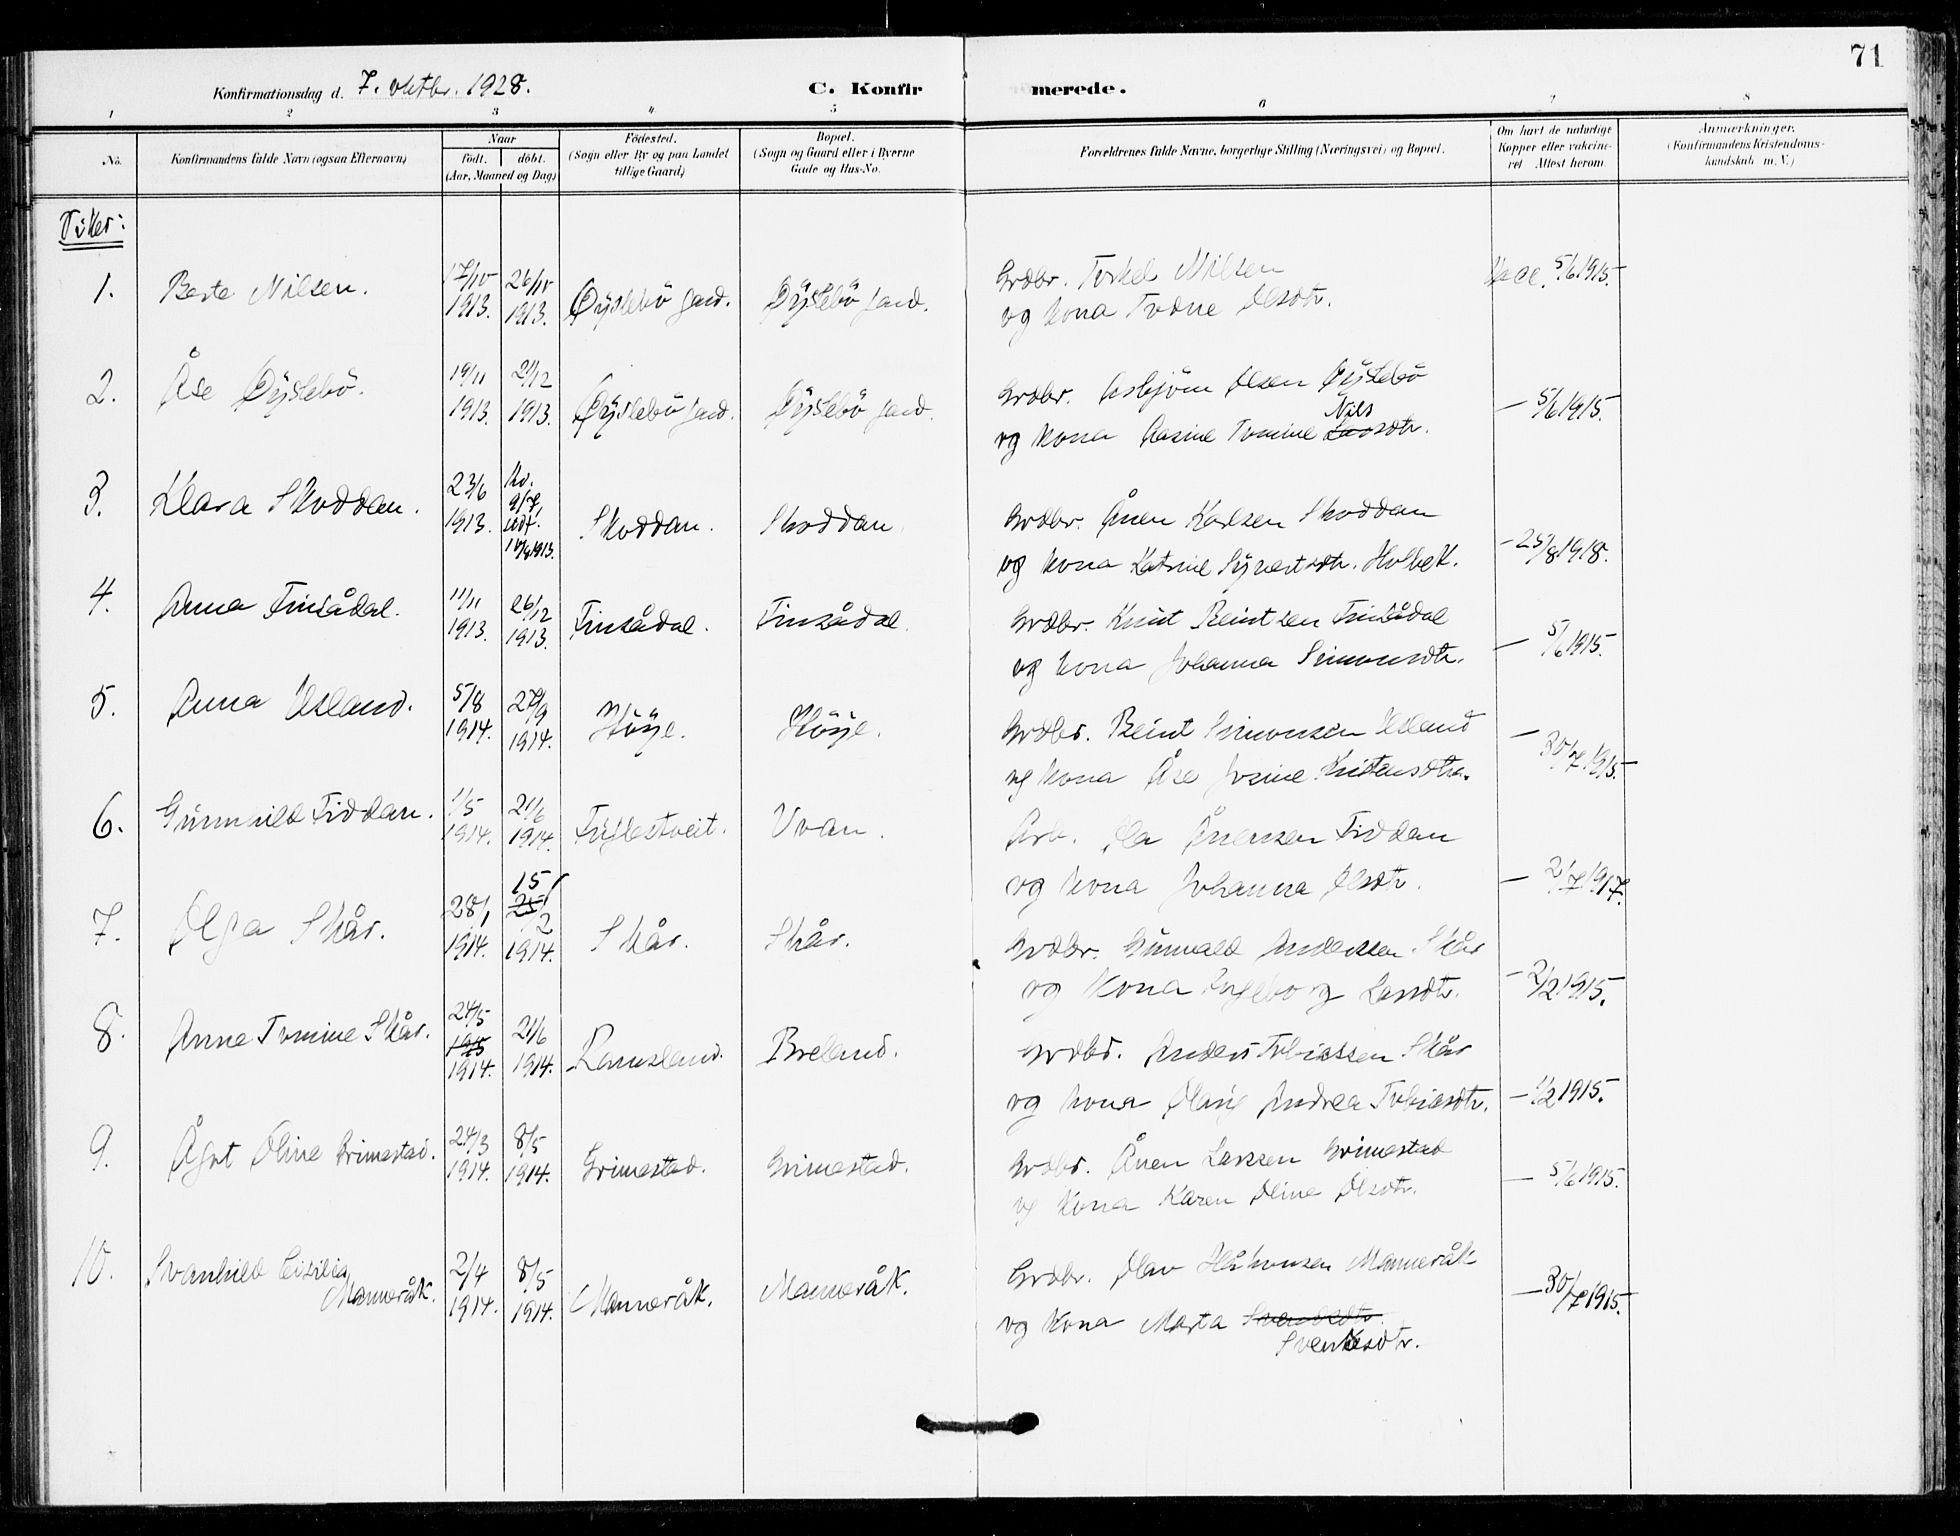 71
Konfirmationsdag d. 7. oktbr. 1928. C. Konfir merede.
1 2 3 4 5 6 7 8
No. Konfirmandens fulde Navn (ogsaa Efternavn)
Naar
født. døbt.
(Aar, Maaned og Dag)
Fødested.
(Sogn eller By og paa Landet
tillige Gaard)
Bopæl.
(Sogn og Gaard eller i Byerne
Gade og Hus-No.
Forældrenes fulde Navne, borgerlige Stilling (Næringsvei) og Bopæl.
Om havt de naturlige
Kopper eller vakcine-
ret Attest herom.
Anmærkninger.
(Konfirmandens Kristendoms-
kundskab m. V.)
Piker:
1. Berte Nilsen. 17/10 1913. 26/10 1913. Øyslebö gard. Øyslebö gard.
Grdbr. Torkel Nilsen
og kona Todne Olsdtr.
Vacc. 5/6 1915
2. Åse Øyslebö. 19/11 1913. 21/12 1913. Øyslebö gard. Øyslebö gard.
Grdbr. Asbjörn Olsen Øyslebö
og kona Aasine Tomine Lars Nilsdtr.
— 5/6 1915.
3. Klara Skoddan. 23/6 1913. 9/7, 10/8 1913. Skoddan. Skoddan.
Grdbr. Ånen Karlsen Skoddan
og kona Katrine Syvertsdtr. Holbek.
- 25/8 1918.
4. Anna Finsådal. 11/11 1913. 26/12 1913. Finsådal. Finsådal.
Grdbr. Knut Reintsen Finsådal
og kona Johanna Simonsdtr.
— 5/6 1915.
5. Anna Usland. 5/8 1914. 27/9 1914. Höye. Höye.
Grdbr. Reint Simonsen Usland
og kona Åse Josine Kristensdtr.
— 30/7 1915
6. Gunnhild Fiddan. 1/5 1914. 21/6 1914. Fuglestveit. Uvan.
Arb. Ola Ånensen Fiddan
og kona Johanna Olsdtr.
— 2/7 1917.
7. Olga Skår. 28/1 1914. 25 15/2 1914. Skår. Skår.
Grdbr. Gunvald Anderssen Skår
og kona Ingeborg Larsdtr.
- 2/2 1915.
8. Anne Tomine Skår. 24/5 1915 1914. 21/6 1914. Ramsland. Breland.
Grdbr. Anders Tobiassen Skår
og kona Andrea Tobiasdtr.
— 1/2 1915.
9. Ågot Oline Grimestad. 24/3 1914. 8/5 1914. Grimestad. Grimestad.
Grdbr. Ånen Larssen Grimestad
og kona Karen Oline Olsdtr.
— 5/6 1915.
10. Svanhild Cisilia
Manneråk. 2/4 1914. 8/5 1914. Manneråk. Manneråk.
Grdbr. Olav Håkonsen Manneråk
og kona Marta
Svenkesdtr.
— 30/7 1915.